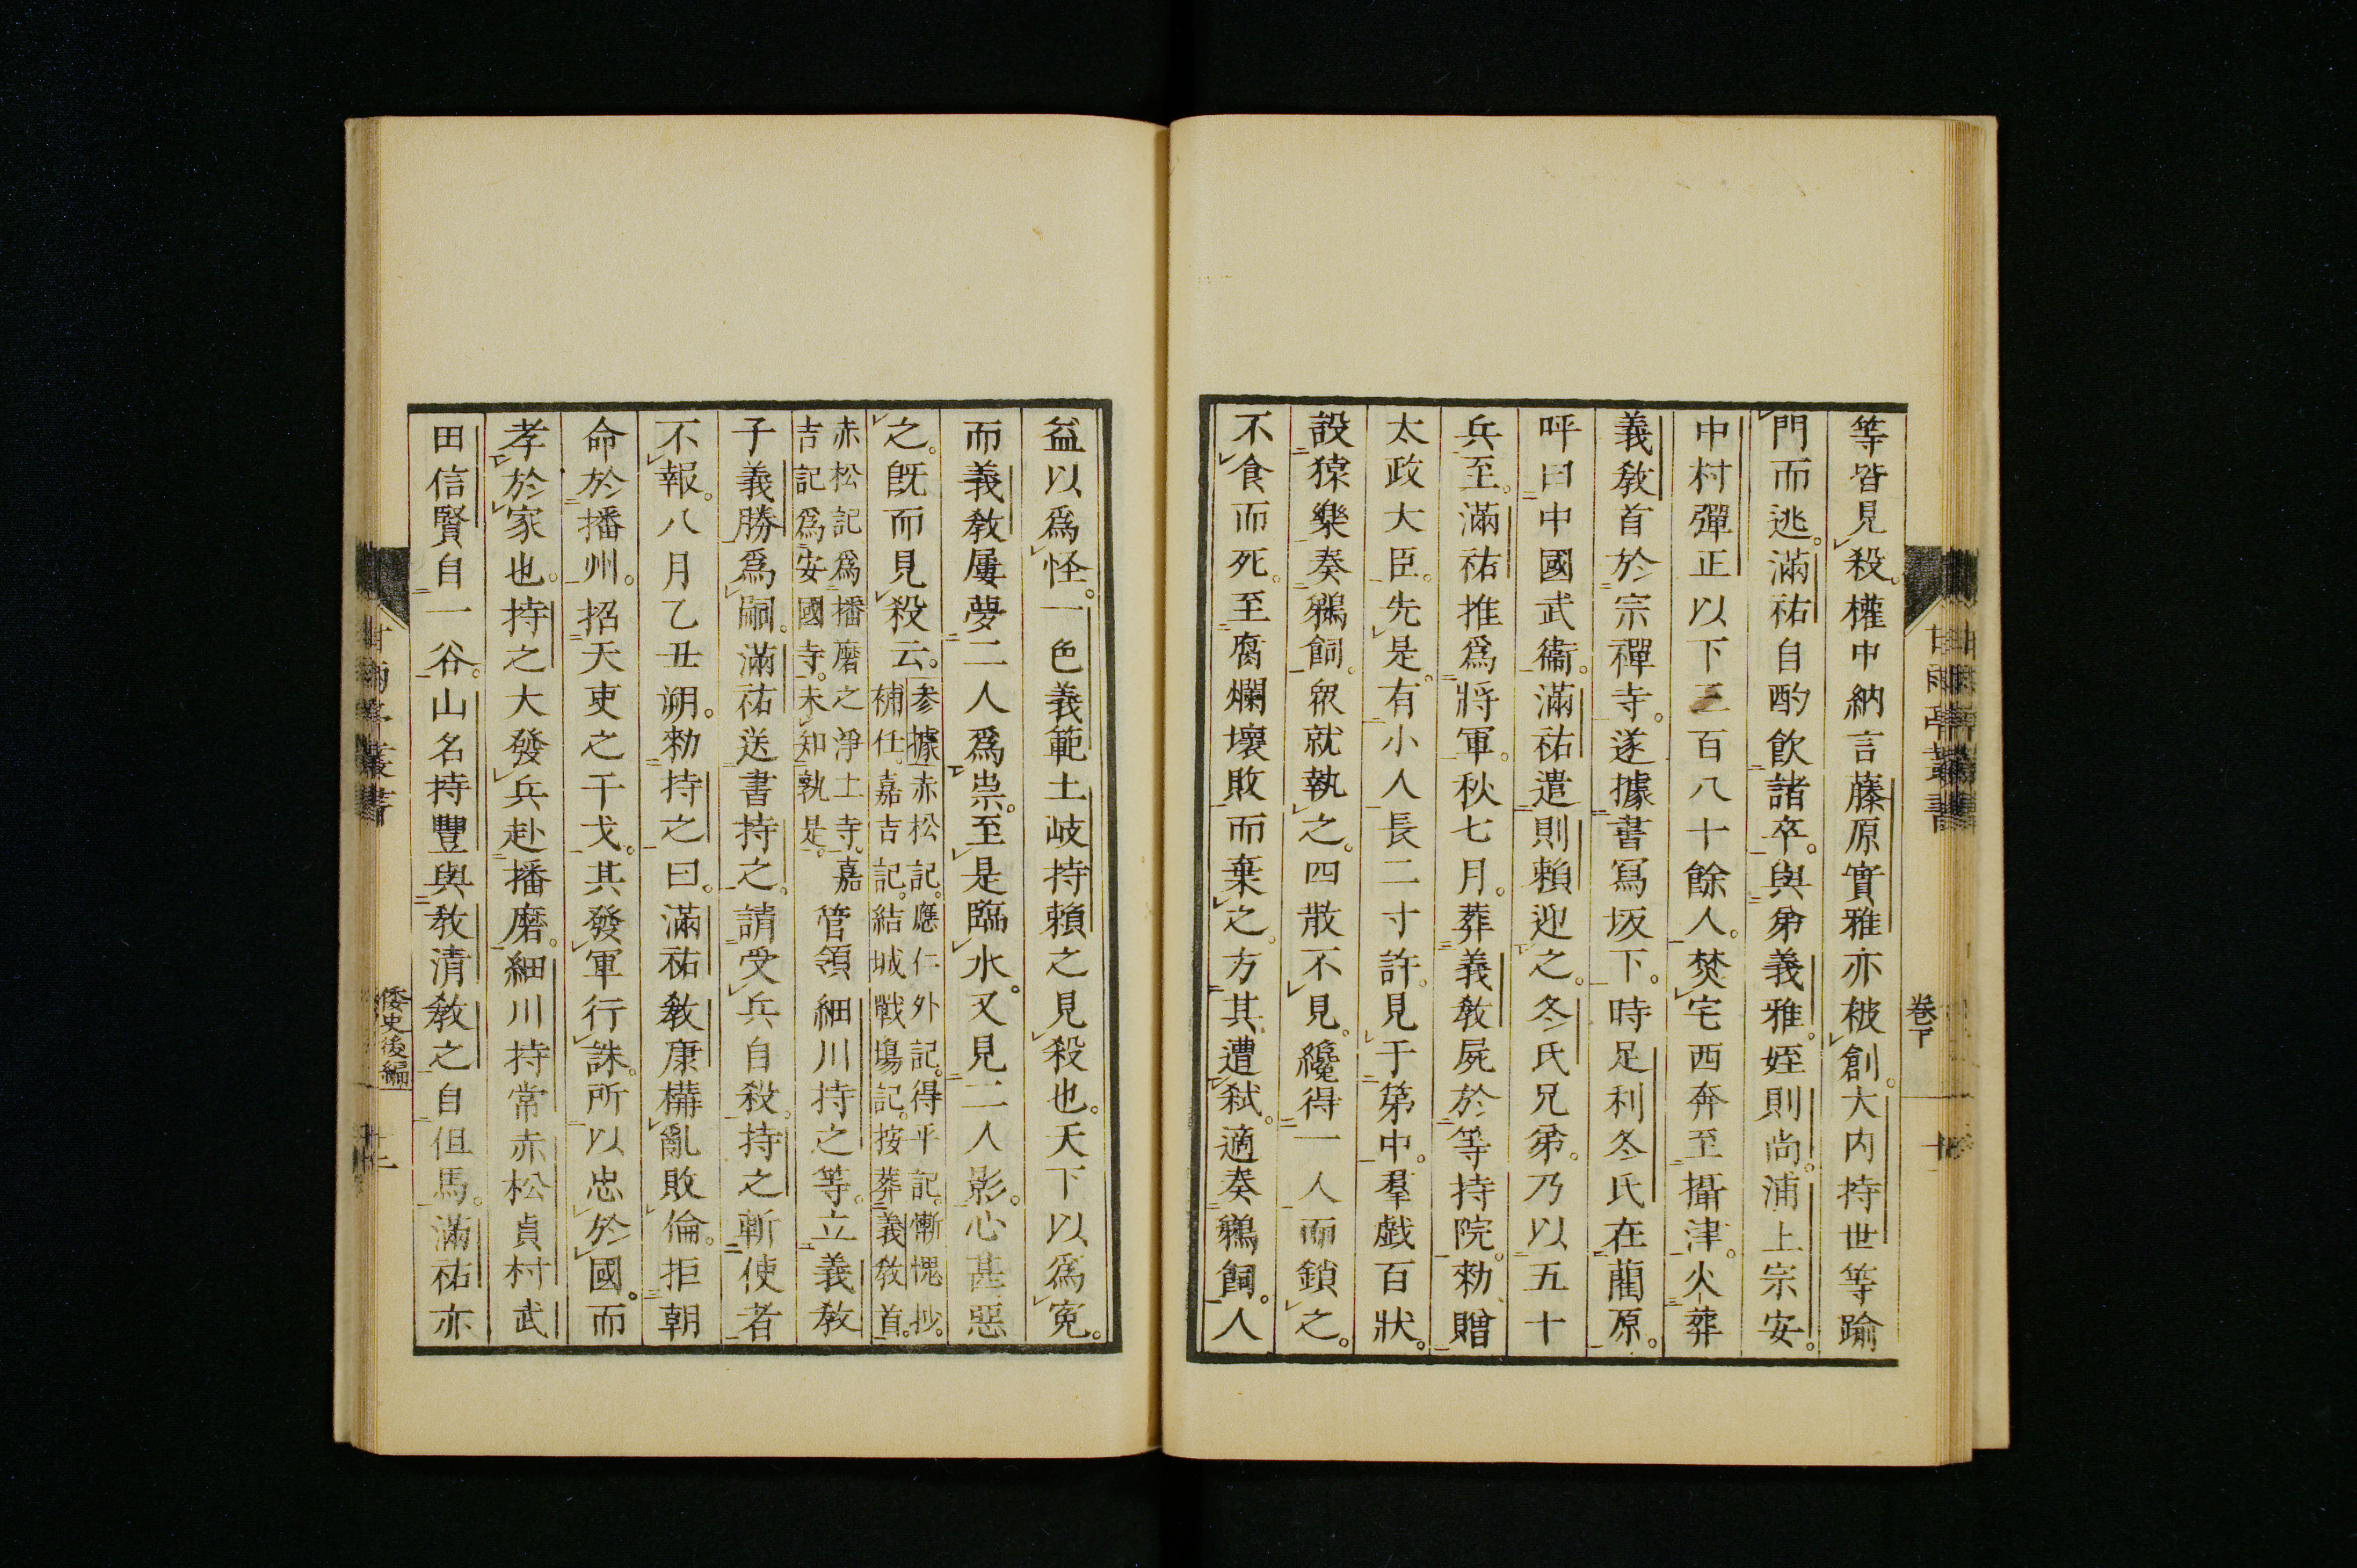 等皆見殺。權中納言藤原實雅亦被創。大内持世等踰
門而逃。滿祐自酌飲諸卒。與弟義雅。姪則尚。浦上宗安。
中村彈正以下三百八十餘人。焚宅西奔至攝津。火葬
義敎首於宗禪寺。遂據書寫坂下。時足利冬氏在藺原。
呼曰中國武衞。滿祐遣則賴迎之。冬氏兄弟。乃以五十
兵至。滿祐推爲將軍。秋七月。葬義敎屍於等持院。勑贈
太政大臣。先是。有小人長二寸許。見于第中。羣戲百狀。
設猿樂奏鵜飼。衆就執之。四散不見。纔得一人而鎖之。
不食而死。至腐爛壞敗而棄之。方其遭弑。適奏鵜飼。人
益以爲怪。一色義範土岐持賴之見殺也。天下以爲寃。
而義敎屢夢二人爲祟。至是臨水。又見二人影。心甚惡
之。旣而見殺云。参據赤松記。應仁外記。得平記。慚愧抄。
補任。嘉吉記。結城戰場記。按葬義敎首。
赤松記爲播磨之淨土寺。嘉
吉記爲安國寺。未知孰是。
管領細川持之等。立義敎
子義勝爲嗣。滿祐送書持之。請受兵自殺。持之斬使者
不報。八月乙丑朔。勑持之曰。滿祐敎康構亂敗倫。拒朝
命於播州。招天吏之干戈。其發軍行誅。所以忠於國。而
孝於家也。持之大發兵赴播磨。細川持常赤松貞村武
田信賢自一谷。山名持豐與敎清敎之自但馬。滿祐亦
甘雨亭叢書
卷下
倭史後編